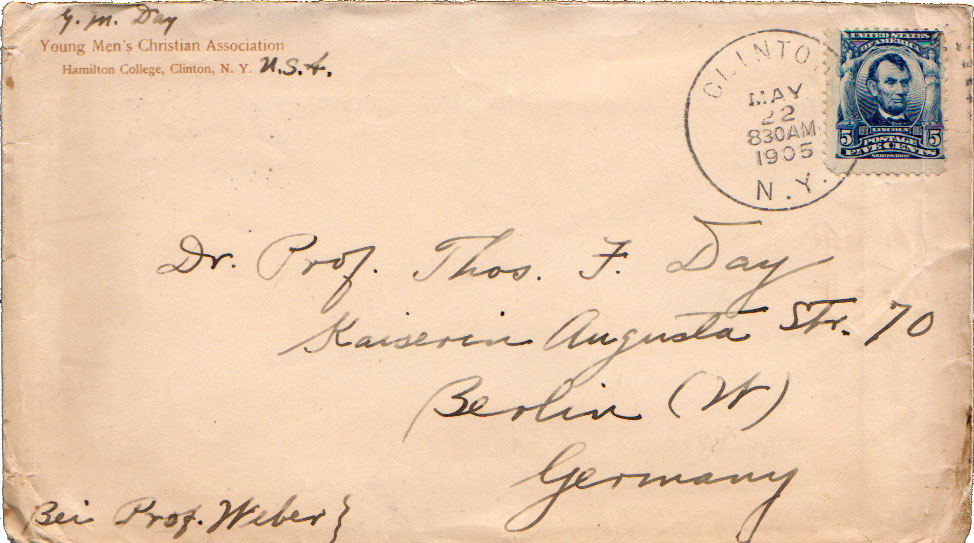 G. M. Day
Young Men's Christian Association
Hamilton College, Clinton, N. Y. U.S.A.
CLINTO
MAY
22
830AM
1905
N.Y.
UNITED STATES
OF AMERICA
5 LINCOLN 5
POSTAGE
FIVE CENTS
SERIES 1902
Dr. Prof. Thos. F. Day
Kaiserin Augusta Str. 70
Berlin (W)
Germany
Bei Prof. Weber}